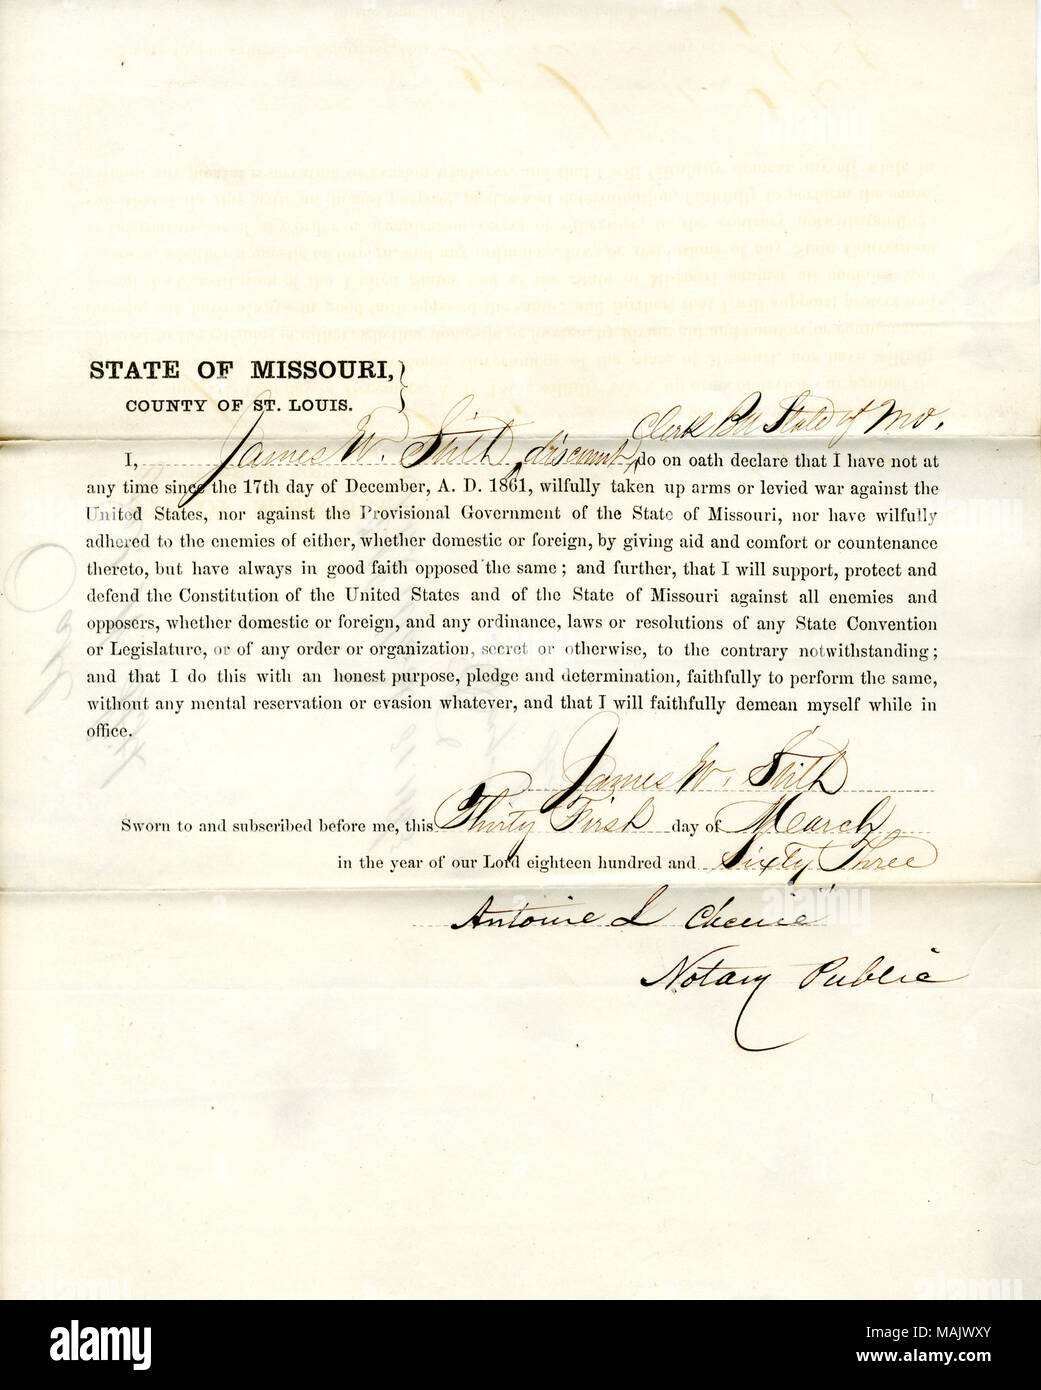 STATE OF MISSOURI,
COUNTY OF ST. LOUIS.
Clerk BK State of Mo.
I, James W. Stith, discount do on oath declare that I have not at
any time since the 17th day of December, A. D. 1861, wilfully taken up arms or levied war against the
United States, nor against the Provisional Government of the State of Missouri, nor have wilfully
adhered to the enemies of either, whether domestic or foreign, by giving aid and comfort or countenance
thereto, but have always in good faith opposed the same; and further, that I will support, protect and
defend the Constitution of the United States and of the State of Missouri against all enemies and
opposers, whether domestic or foreign, and any ordinance, laws or resolutions of any State Convention
or Legislature, or of any order or organization, secret or otherwise, to the contrary notwithstanding;
and that I do this with an honest purpose, pledge and determination, faithfully to perform the same,
without any mental reservation or evasion whatever, and that I will faithfully demean myself while in
office.
James W. Stith
Sworn to and subscribed before me, this Thirty First day of March
in the year of our Lord eighteen hundred and Sixty Three
Antoine L Chenie
Notary Public
alamy
Image ID: MAJWXY
www.alamy.com